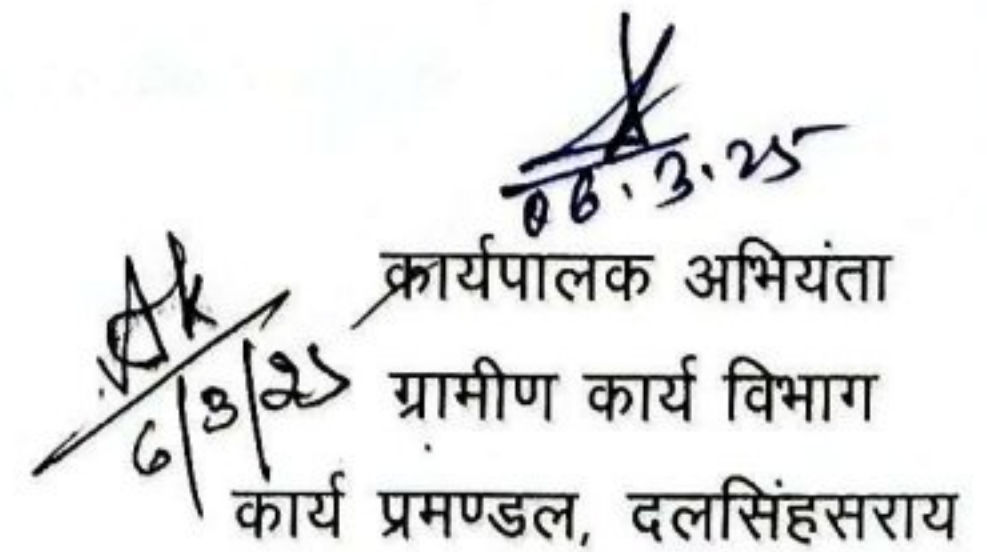 06.3.25
कार्यपालक अभियंता
6/3/25 ग्रामीण कार्य विभाग
कार्य प्रमण्डल, दलसिंहसराय